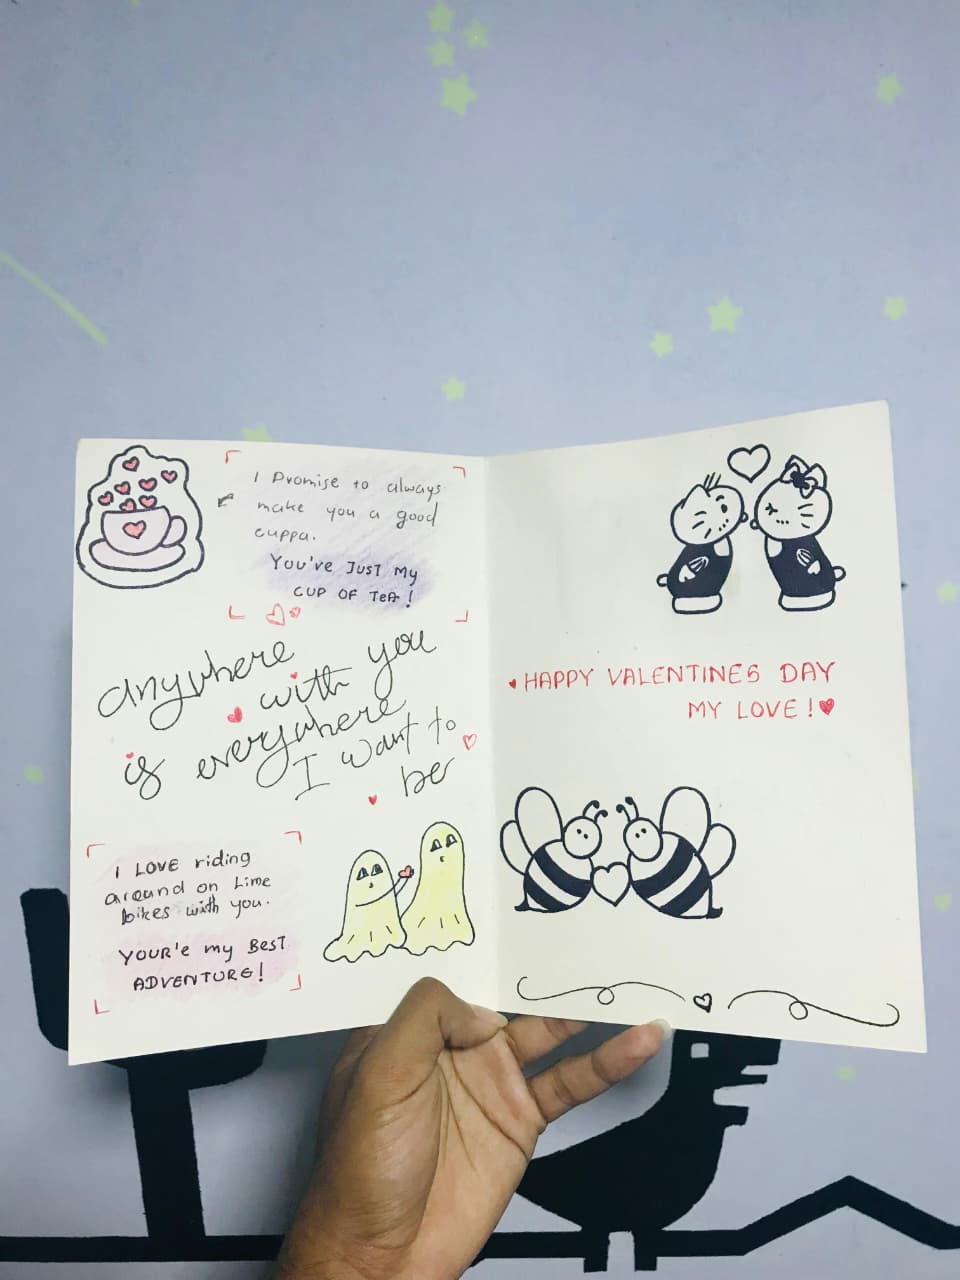 I Promise to always
make you a good
cuppa.
YOU'VE JUST MY
CUP OF TEA!
anywhere
with you
is everywhere
I want to
be
I LOVE riding
around on Lime
bikes with you.
YOUR'e my BEST
ADVENTURE!
HAPPY VALENTINES DAY
MY LOVE!